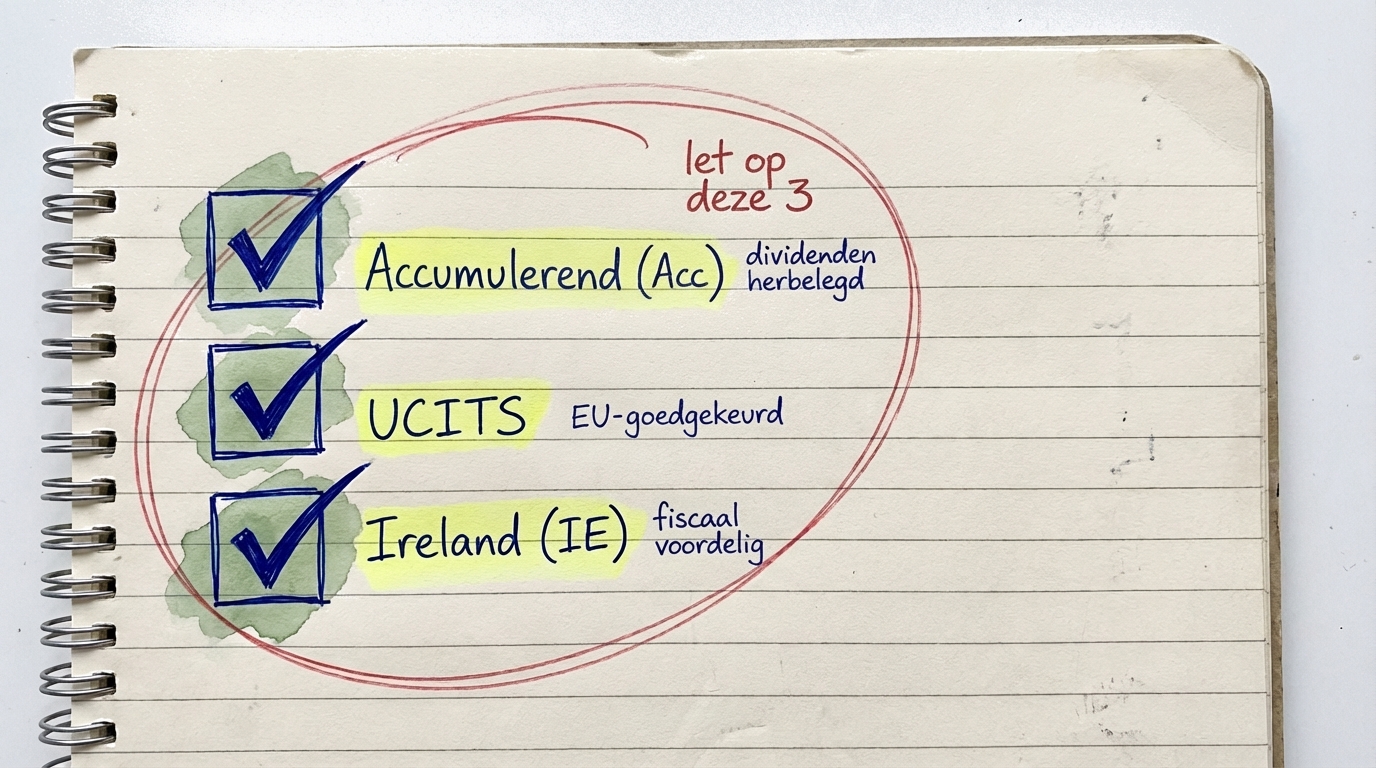 let op
deze 3
Accumulerend (Acc)
dividenden
herbelegd
UCITS
EU-goedgekeurd
Ireland (IE)
fiscaal
voordelig